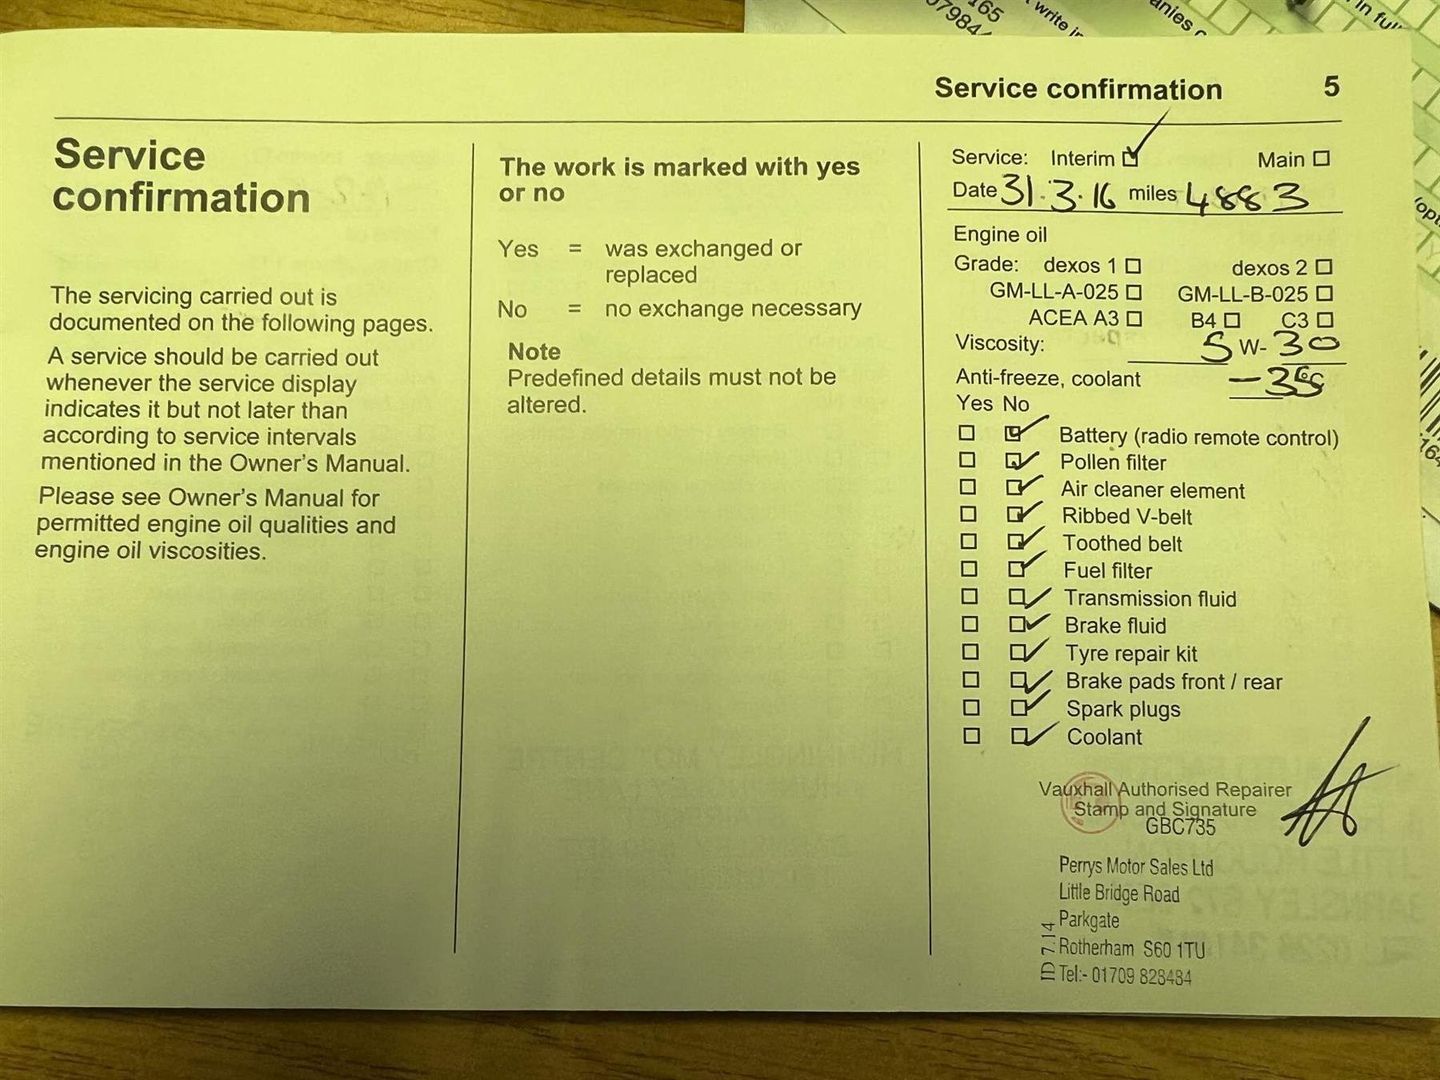 165
079844
write in
anies
in full
Service confirmation 5
Service
confirmation
The servicing carried out is
documented on the following pages.
A service should be carried out
whenever the service display
indicates it but not later than
according to service intervals
mentioned in the Owner's Manual.
Please see Owner's Manual for
permitted engine oil qualities and
engine oil viscosities.
The work is marked with yes
or no
Yes = was exchanged or
replaced
No = no exchange necessary
Note
Predefined details must not be
altered.
Service: Interim Main
Date 31.3.16 miles 4883
Engine oil
Grade: dexos 1 dexos 2
GM-LL-A-025 GM-LL-B-025
ACEA A3 B4 C3
Viscosity: 5 W- 30
Anti-freeze, coolant
Yes No
Battery (radio remote control)
Pollen filter
Air cleaner element
Ribbed V-belt
Toothed belt
Fuel filter
Transmission fluid
Brake fluid
Tyre repair kit
Brake pads front / rear
Spark plugs
Coolant
Vauxhall Authorised Repairer
Stamp and Signature
GBC735
Perrys Motor Sales Ltd
Little Bridge Road
Parkgate
Rotherham S60 1TU
Tel:- 01709 828484
ID 7.14